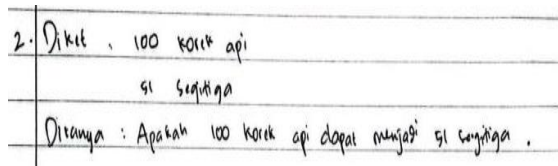 2. Diket, 100 korek api
51 segitiga
Ditanya : Apakah 100 korek api dapat menjadi 51 segitiga.